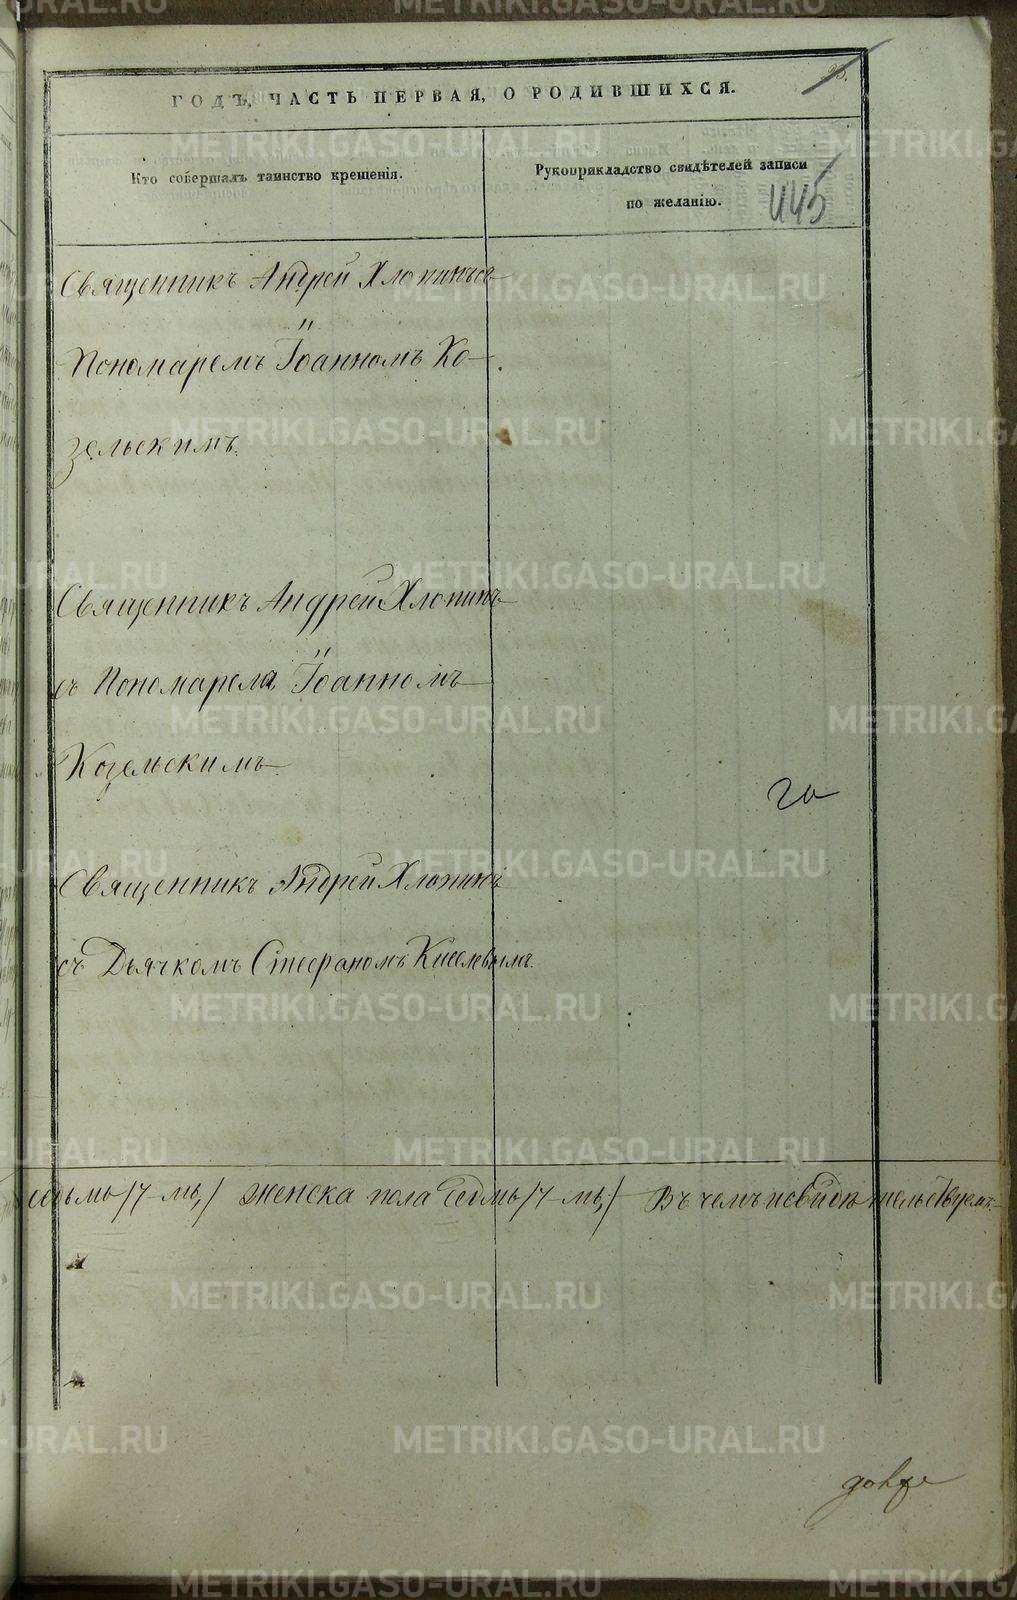 ГОДЪ, ЧАСТЬ ПЕРВАЯ, О РОДИВШИХСЯ.
Кто совершалъ таинство крещенія.
Рукоприкладство свидѣтелей записи
по желанію.
445
Священникъ Андрей Хлопинъ съ
Пономаремъ Іоанномъ Ко-
зельскимъ.
Священникъ Андрей Хлопинъ
съ Пономаремъ Іоанномъ
Козельскимъ
Священникъ Андрей Хлопинъ
съ Дьячкомъ Стефаномъ Киселевымъ.
седьмь /7-мь,/ женска пола Седмь /7-мь,/ Въ чемъ и свидѣтельствуемъ.
METRIKI.GASO-URAL.RU